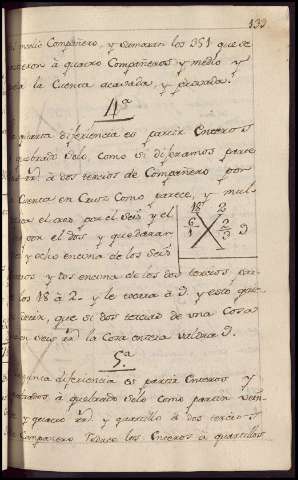 133
medio Compañero, y sumaran los 351 que se
à quatro Compañeros y medio y
la Cuenta acavada, y provada.
4ª
quarta diferencia es partir Enteros
quebrado solo, como si dixeramos partir
à dos tercios de Compañero pon
Cuenta en Cruz Como parece, y mul-
el uno por el Seis y el
por el dos y quedaran
y ocho encima de los Seis
18 2
6 2
1 3 9
y dos encima de los dos tercios par
los 18 à 2 y le tocara à 9. y esto quie
decir, que si dos tercias de una Cosa
Seis la Cosa entera valdra 9.
5ª
quinta diferencia es partir Enteros y
à quebrado solo como partir Vein
y quatro y quartillo à dos tercios
Compañero Reduce los Enteros à quartillos